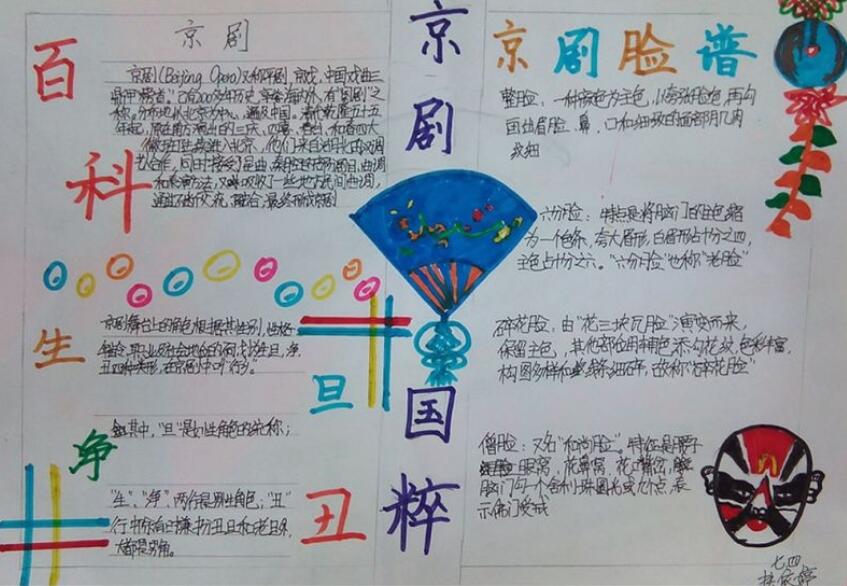 百科
京剧
京剧(Beijing Opera)又称平剧,京戏,中国戏曲三
鼎甲"榜首"。已有200多年历史,
称。分布地以北京为中心,遍及中国。清代乾隆五十五
年起,原在南方演出的三庆,四喜,春台,和春四大
徽班陆续进入北京,他们来自湖北的汉调
艺人合作,同时接受了昆曲,秦腔的部分剧目,曲调
和表演方法,又吸收了一些地方民间曲调,
通过不断交流,融合,最终形成京剧
生
京剧舞台上的角色根据其性别,性格
年龄,职业及社会地位的不同,划为生旦,净,
丑四种类形,在京剧中叫"行"。
旦
其中,"旦"是女性角色的统称;
净
"生"、"净",两行是男性角色;"丑"
行中除有时兼扮丑旦和老旦外,
大都是男角。
丑
京剧
国粹
京剧脸谱
整脸:一种颜色为主色,以夸张肤色,再勾
画出眉眼、鼻、口和细致的面部肌肉
纹细
六分脸:特点是将脑门的主色缩
为一个色条,夸大眉形,白眉形占十分之四,
主色占十分之六。"六分脸"也称"老脸"
碎花脸:由"花三块瓦脸"演变而来,
保留主色,其他部位用辅色添勾花纹,色彩丰富,
构图多样和线条细碎,故称"碎花脸"
僧脸:又名"和尚脸"。特征是腰子
眼窝,花鼻窝,花嘴岔,
脑门勾一个舍利珠圆光或九个点,表
示佛门受戒
七四